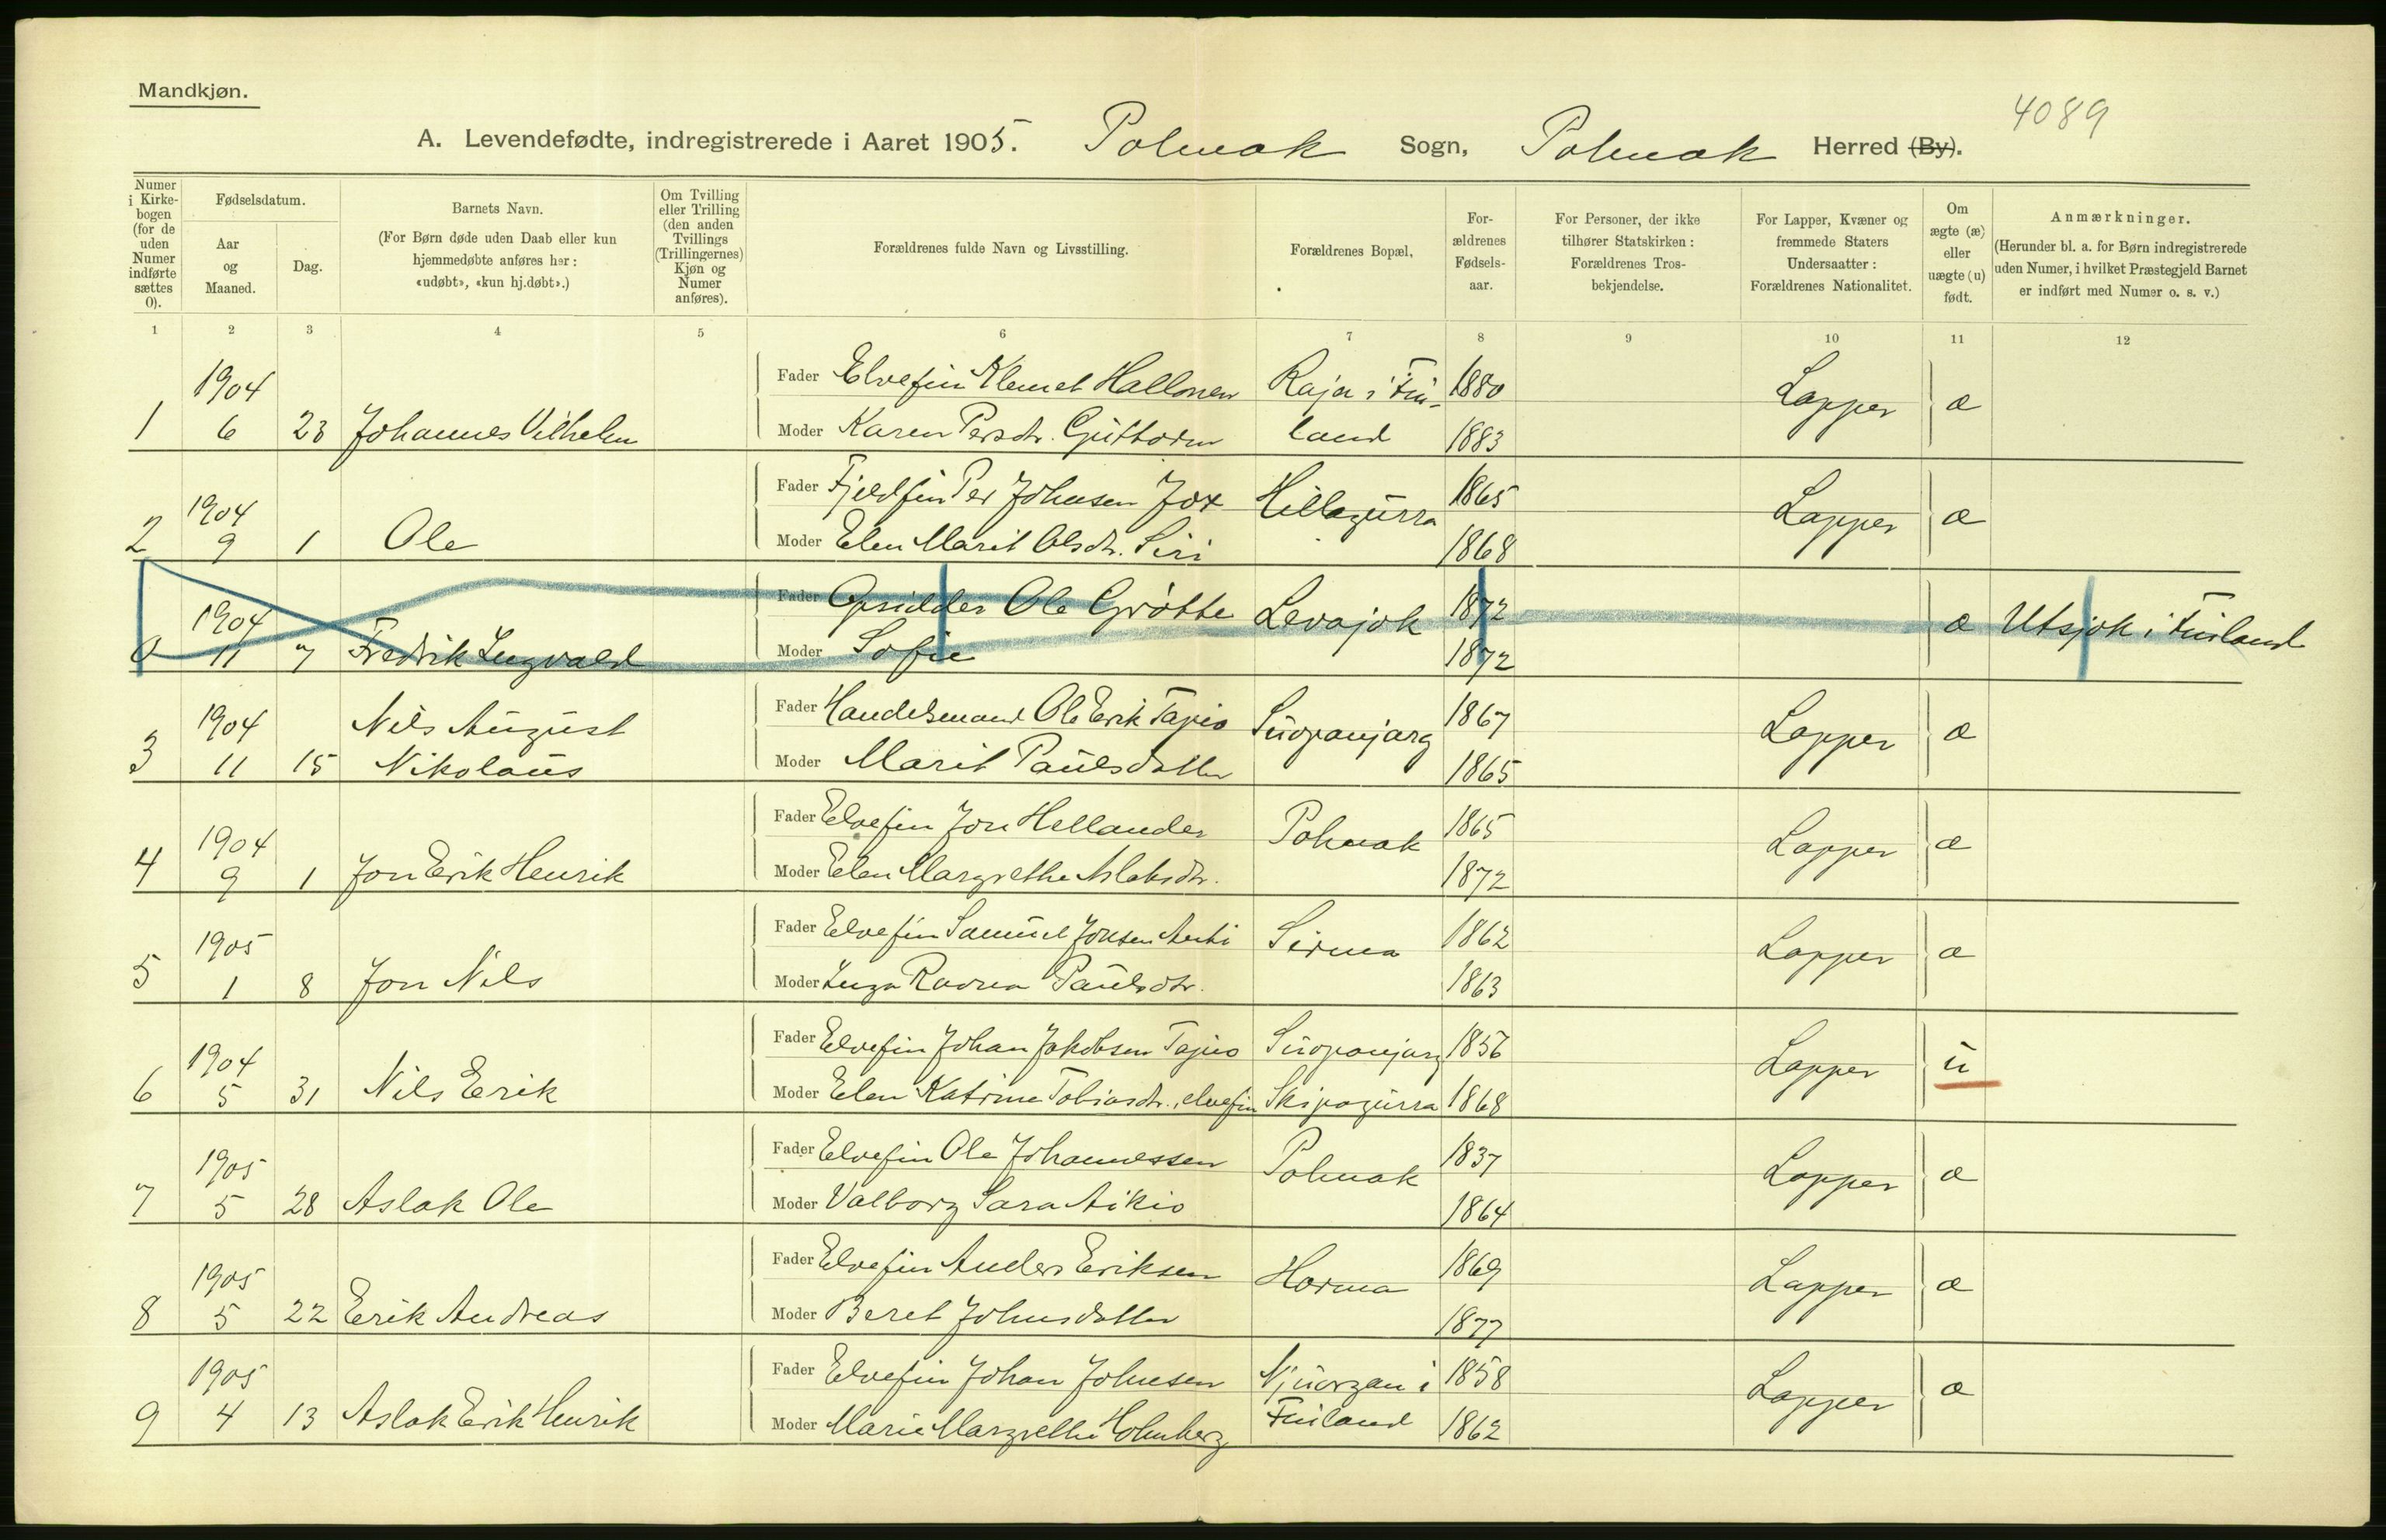 Mandkjøn.
4089
A. Levendefødte, indregistrerede i Aaret 1905. Polmak Sogn, Polmak Herred (By).
Numer i Kirkebogen (for de uden Numer indførte sættes 0).
Fødselsdatum.
Aar og Maaned.
Dag.
Barnets Navn.
(For Børn døde uden Daab eller kun hjemmedøbte anføres her: «udøbt», «kun hj.døbt».)
Om Tvilling eller Trilling (den anden Tvillings (Trillingernes) Kjøn og Numer anføres).
Forældrenes fulde Navn og Livsstilling.
Forældrenes Bopæl,
Forældrenes Fødselsaar.
For Personer, der ikke tilhører Statskirken: Forældrenes Trosbekjendelse.
For Lapper, Kvæner og fremmede Staters Undersaatter: Forældrenes Nationalitet.
Om ægte (æ) eller uægte (u) født.
Anmærkninger.
(Herunder bl. a. for Børn indregistrerede uden Numer, i hvilket Præstegjeld Barnet er indført med Numer o. s. v.)
1 2 3 4 5 6 7 8 9 10 11 12
1904 Fader Elvefin Klemet Hallonen Raja i Fin- 1880 Lapper æ
1 6 23 Johannes Vilhelm Moder Karen Persdtr. Guttorm land 1883
1904 Fader Fjeldfin Per Johnsen Jox Hillagurra 1865 Lapper æ
2 9 1 Ole Moder Elen Marit Olsdtr. Siri 1868
1904 Fader Opsidder Ole Grøtte Levajok 1872 æ Utsjok i Finland
0 11 7 Fredrik Ingvald Moder Sofie 1872
1904 Nils August Fader Handelsmand Ole Erik Tapio Suopanjarg 1867 Lapper æ
3 11 15 Nikolaus Moder Marit Paulsdatter 1865
1904 Fader Elvefin Jon Hellander Polmak 1865 Lapper æ
4 9 1 Jon Erik Henrik Moder Elen Margrethe Aslaksdtr. 1872
1905 Fader Elvefin Samuel Jonsen Anti Sirma 1862 Lapper æ
5 1 8 Jon Nils Moder Inga Ravna Paulsdtr. 1863
1904 Fader Elvefin Johan Jakobsen Tapio Suopanjarg 1856 Lapper u
6 5 31 Nils Erik Moder Elen Katrine Tobiasdtr., elvefin Skipagurra 1868
1905 Fader Elvefin Ole Johannessen Polmak 1837 Lapper æ
7 5 28 Aslak Ole Moder Valborg Sara Aikio 1864
1905 Fader Elvefin Anders Eriksen Horma 1869 Lapper æ
8 5 22 Erik Andreas Moder Beret Johnsdatter 1877
1905 Fader Elvefin Johan Johnsen Njuorgan i 1858 Lapper æ
9 4 13 Aslak Erik Henrik Moder Marie Margrethe Holmberg Finland 1862